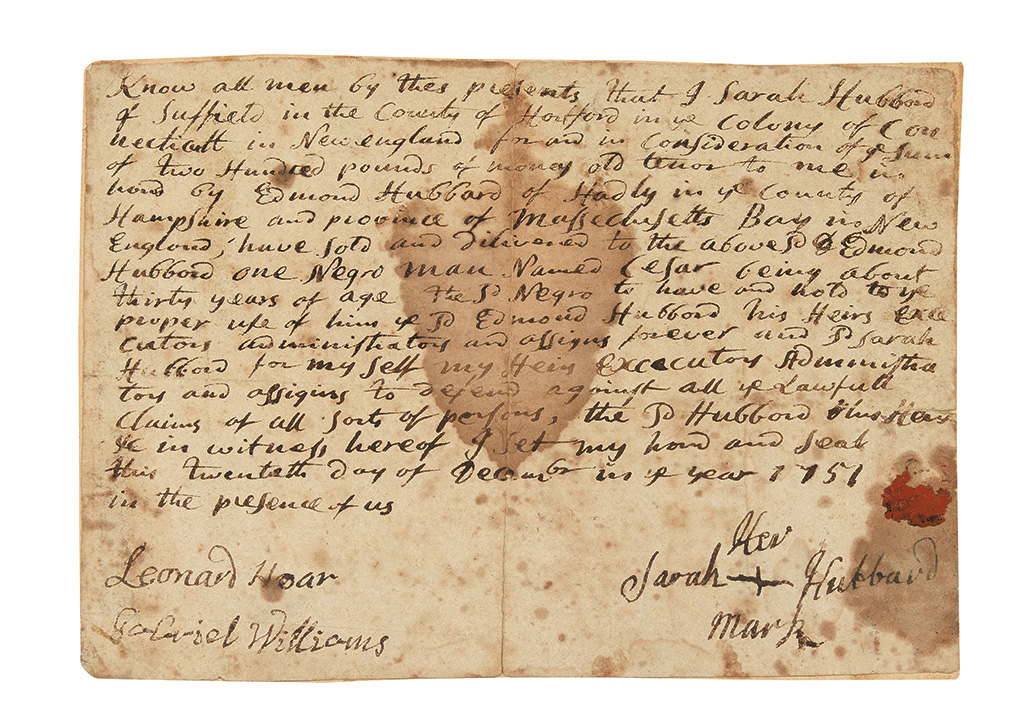 Know all men by thes presents that I Sarah Hubbord
of Suffield in the County of Hortford in ye Colony of Con
necticutt in Newengland for and in Consideration of ye Sum
of two Hundred pounds of money old tenor to me in
hond by Edmond Hubbard of Hadly in ye County of
Hampshire and province of Massechusetts Bay in New
England, have sold and delivered to the above sd Edmond
Hubbord one Negro man Named Cesar being about
thirty years of age the sd Negro to have and hold to ye
proper use of him ye sd Edmond Hubbord his Heirs Exce
cutors administrators and assigns forever and sd Sarah
Hubbord for my self my Heirs Excecutors Administra
tors and assigns to defend against all ye Lawfull
Claims of all sorts of persons, the sd Hubbord his Heirs
&c in witness hereof I set my hond and seal
this twentieth day of Decembr in ye year 1751
in the presence of us
Leonard Hoar
Gabriel Williams
Her
Sarah + Hubbard
mark